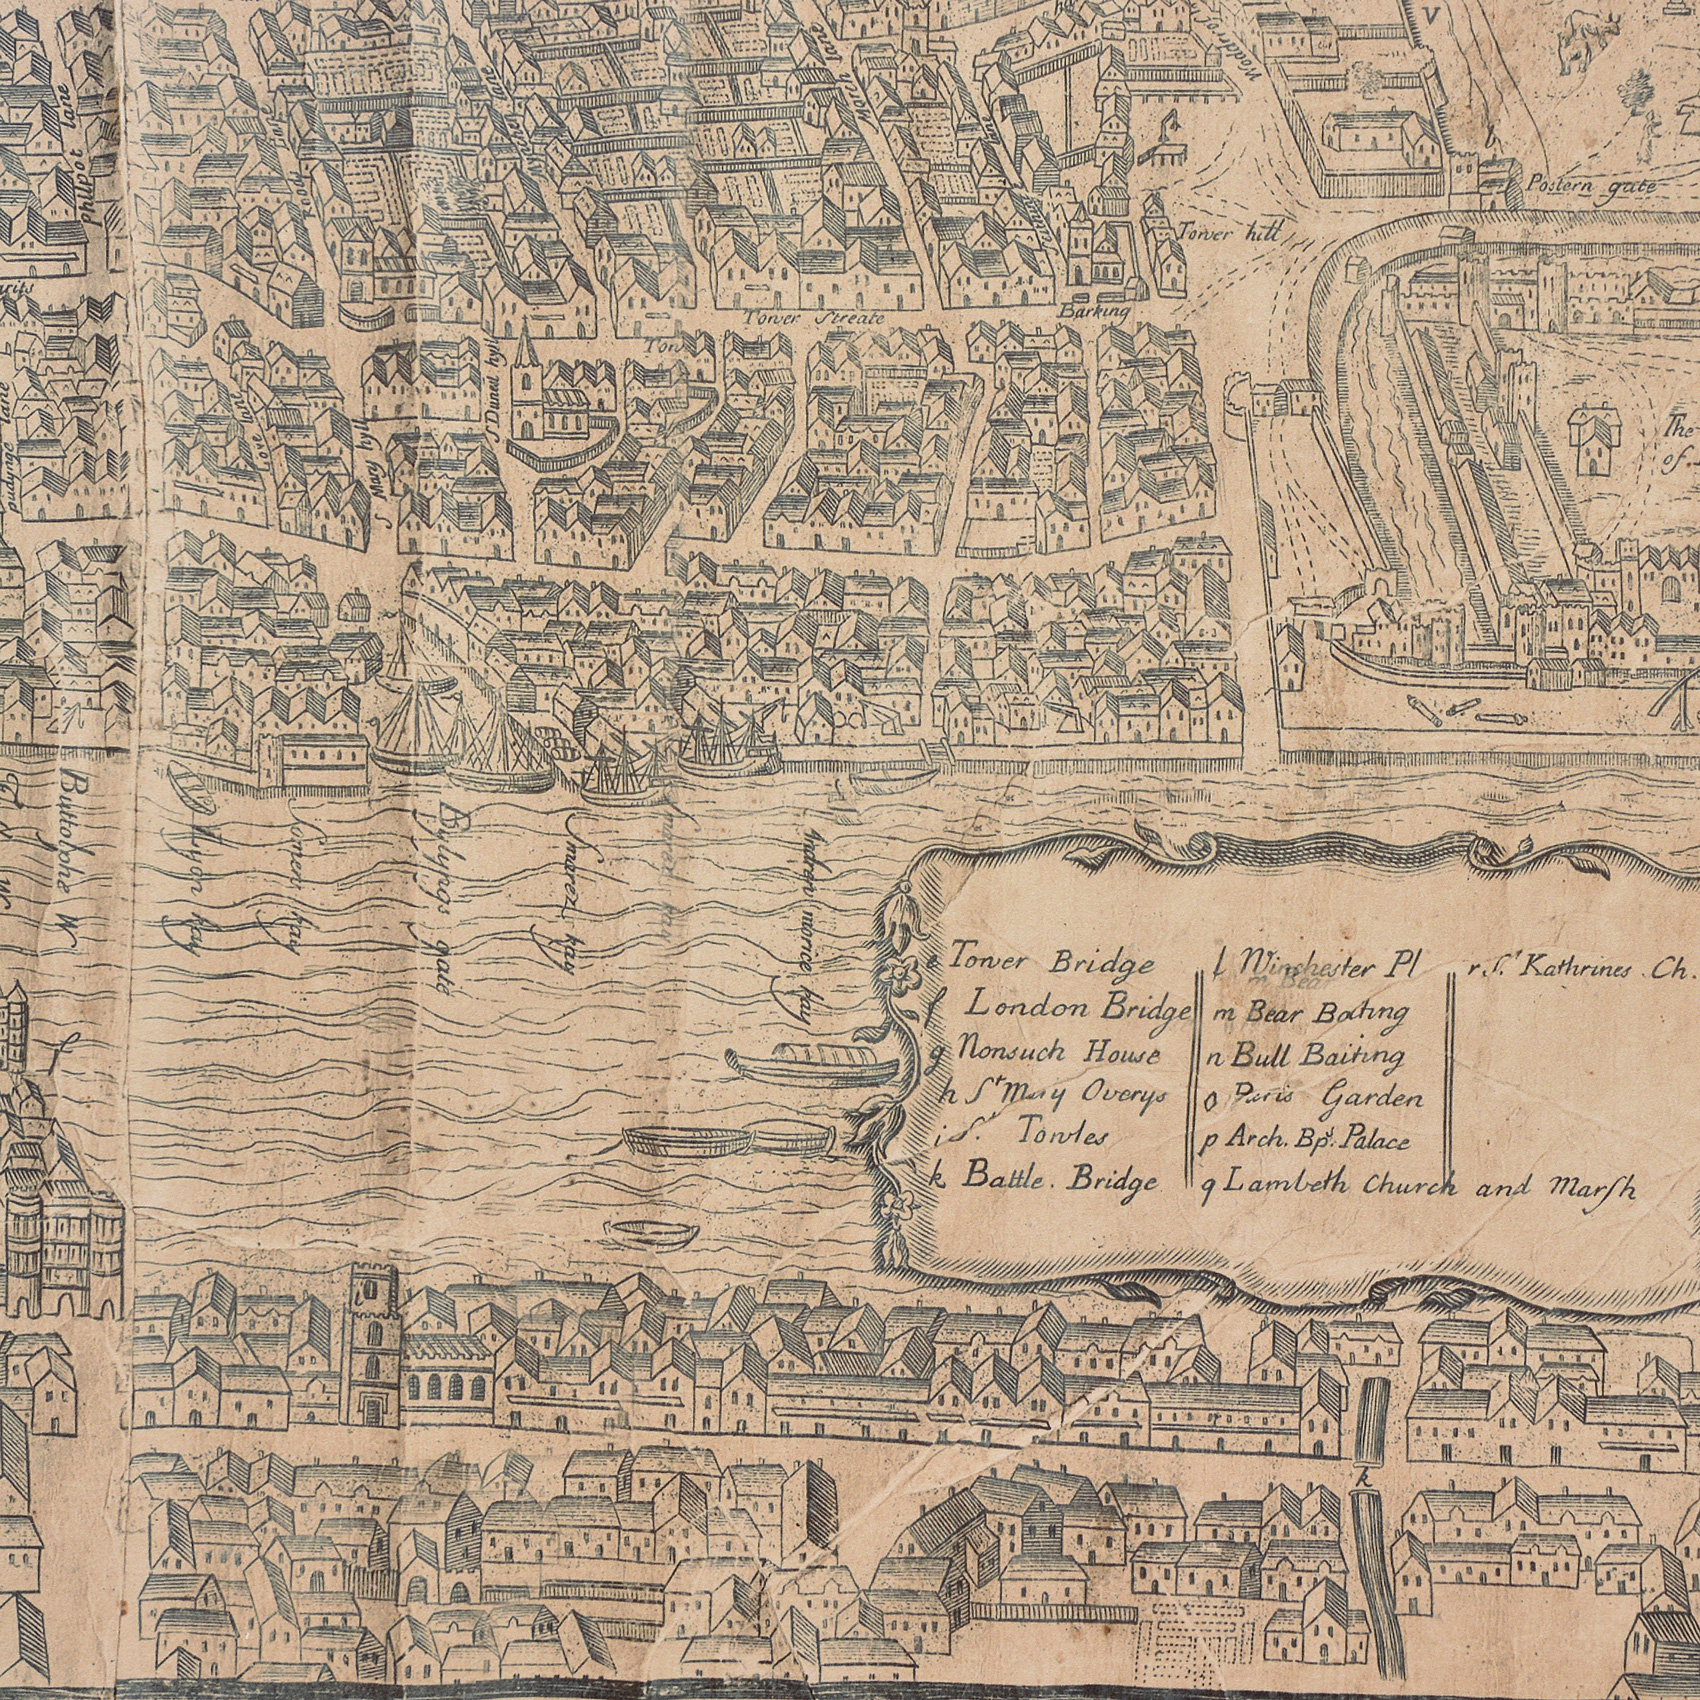 V
Philpot lane
Rood lane
Mynsen lane
Mark lane
Postern gate
Tower hill
Barking
Tower Streate
Tow
pudynge lane
Love lane
S Mary hyll
S Dunst hyll
The
of
Buttolphs W
Lyon kay
Somers kay
Bylyngs gate
Smarez kay
Andrew morice kay
f
e Tower Bridge
f London Bridge
g Nonsuch House
h St Mary Overys
i St. Towles
k Battle. Bridge
l Winchester Pl
m Bear
m Bear Baiting
n Bull Baiting
o Paris Garden
p Arch. Bps. Palace
q Lambeth Church and Marsh
r St Kathrines. Ch.
i
k